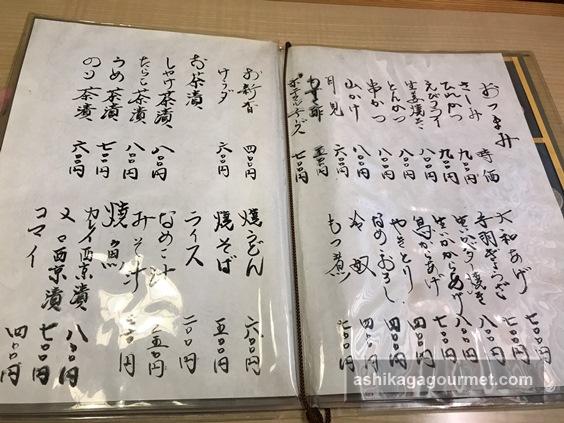 おつまみ
さしみ 時価
ひれかつ 九〇〇円
えびフライ 九〇〇円
生姜焼き 八〇〇円
とんかつ 八〇〇円
串かつ 八〇〇円
山かけ
月見 六〇〇円
七〇〇円
大和あげ 七〇〇円
手羽ぎょうざ 七〇〇円
生いかバター焼き 八〇〇円
生いかからあげ 八〇〇円
鳥からあげ 七〇〇円
やきとり 四〇〇円
なめこおろし 四〇〇円
冷奴 四〇〇円
もつ煮 七〇〇円
お新香 四〇〇円
サラダ 六〇〇円
お茶漬
しゃけ茶漬 八〇〇円
たらこ茶漬 八〇〇円
うめ茶漬 七〇〇円
のり茶漬 六〇〇円
焼うどん 六〇〇円
焼そば 五〇〇円
ライス 二〇〇円
なめこ汁
みそ汁
焼魚
カレイ西京漬 八〇〇円
メロ西京漬 七〇〇円
コマイ 四〇〇円
ashikagagourmet.com